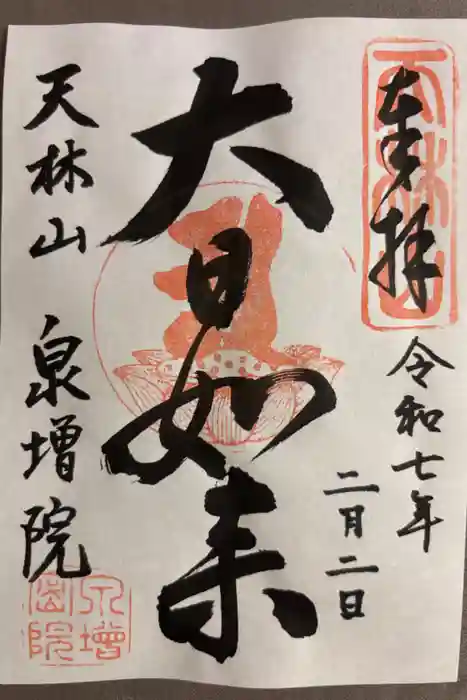 奉拝
令和七年
二月二日
大日如来
天林山 泉増院
天林山
泉増院